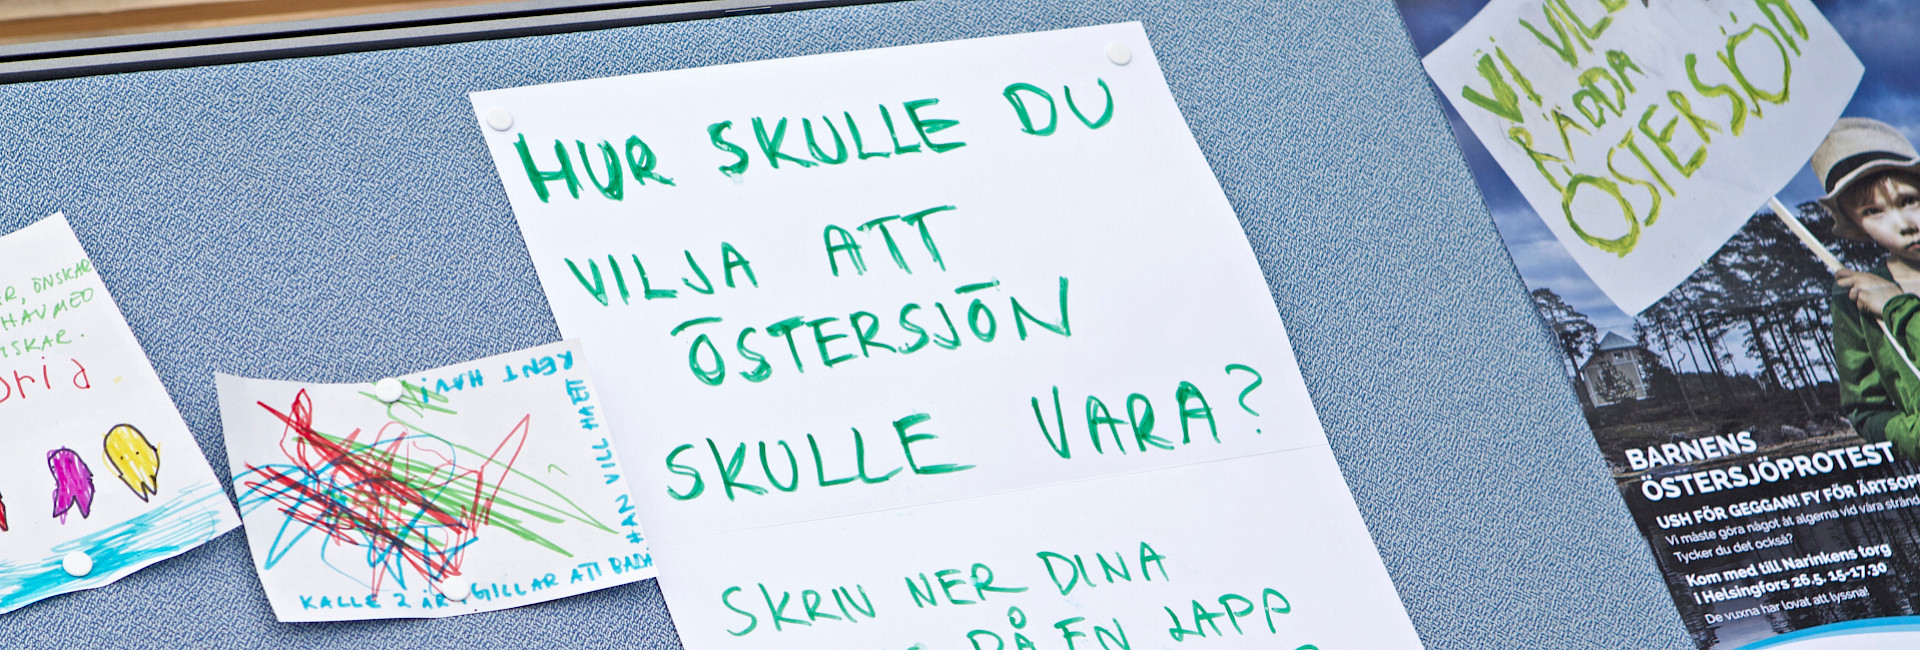 HUR SKULLE DU
VILJA ATT
ÖSTERSJÖN
SKULLE VARA?
SKRIV NER DINA
PÅ EN LAPP
ÖNSKAR
HAV MED
KALLE 2 ÅR, GILLAR ATT BADA
HAN VILL HA ETT
RENT HAV!
VI VILL
RÄDDA
ÖSTERSJÖN
BARNENS
ÖSTERSJÖPROTEST
USH FÖR GEGGAN! FY FÖR ÄRTSOPP
Vi måste göra något åt algerna vid våra stränd
Tycker du det också?
Kom med till Narinkens torg
i Helsingfors 26.5. 15-17.30
De vuxna har lovat att lyssna!